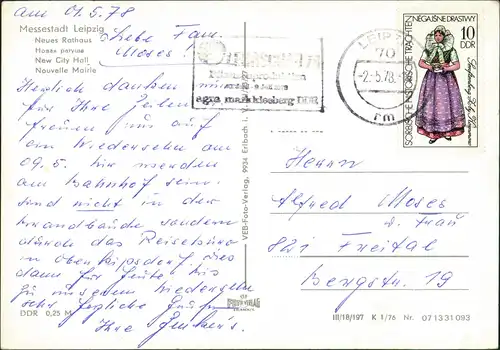 am 01.5.78
Messestadt Leipzig
Neues Rathaus
Новая ратуша
New City Hall
Nouvelle Mairie
Liebe Fam.
Moses!
Herzlich danken wir
für Ihre Zeilen
freuen uns auf
ein Wiedersehen am
09.5. Wir werden
am Bahnhof sein.
Sind nicht in der
sondern
durch das Reisebüro
in
dann für heute bis
zu unserem Wiedersehn
sehr herzliche Grüße
Ihre
DDR 0,25 M
VEB-Foto-Verlag, 9934 Erlbach i. V.
agra markkleeberg DDR
LEIPZIG
70
-2.5.78
rm
SORBISCHE HISTORISCHE TRACHTEN
10
DDR
Herrn
Alfred Moses
u. Frau
821 Freital
Bergstr. 19
III/18/197 K 1/76 Nr. 07 13 31 093